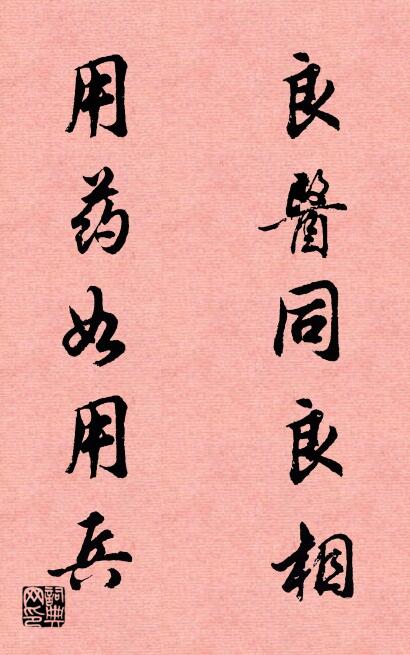 良醫同良相
用药如用兵
詞典网印